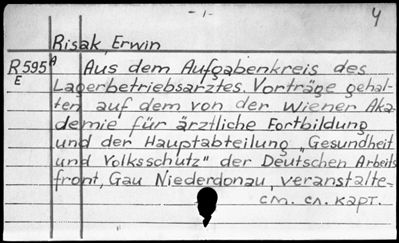 -1-
4
Risak, Erwin
R595 A Aus dem Aufgabenkreis des
E Lagerbetriebsarztes. Vorträge gehal-
ten auf dem von der Wiener Aka-
demie für ärztliche Fortbildung
und der Hauptabteilung „Gesundheit
und Volksschutz" der Deutschen Arbeits
front, Gau Niederdonau, veranstalte-
см. сл. карт.